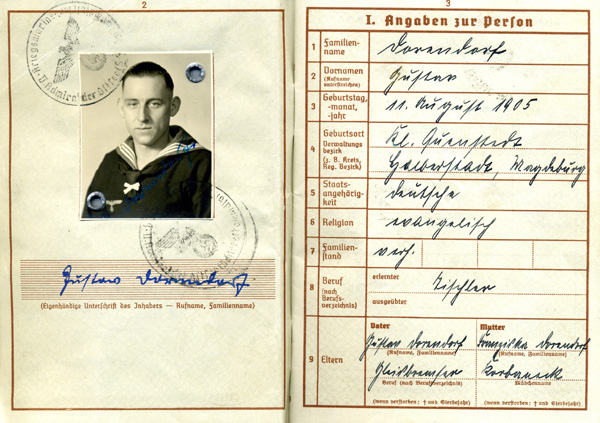 2
Gustav Dorendorf.
(Eigenhändige Unterschrift des Inhabers — Rufname, Familienname)
3
I. Angaben zur Person
1 Familien-name Dorendorf
2 Vornamen (Rufname unterstreichen) Gustav
3 Geburtstag, -monat, -jahr 11. August 1905
4 Geburtsort Verwaltungsbezirk (z. B. Kreis, Reg. Bezirk) Kl. Quenstedt
Halberstadt, Magdeburg
5 Staats-angehörig-keit deutsche
6 Religion evangelisch
7 Familien-stand verh.
8 Beruf (nach Berufs-verzeichnis) erlernter Tischler
ausgeübter
9 Eltern
Vater Mutter
Gustav Dorendorf Franziska Dorendorf
(Rufname, Familienname) (Rufname, Familienname)
Korbaneck
Beruf (nach Berufsverzeichnis) Mädchenname
(wenn verstorben: † und Sterbejahr) (wenn verstorben: † und Sterbejahr)